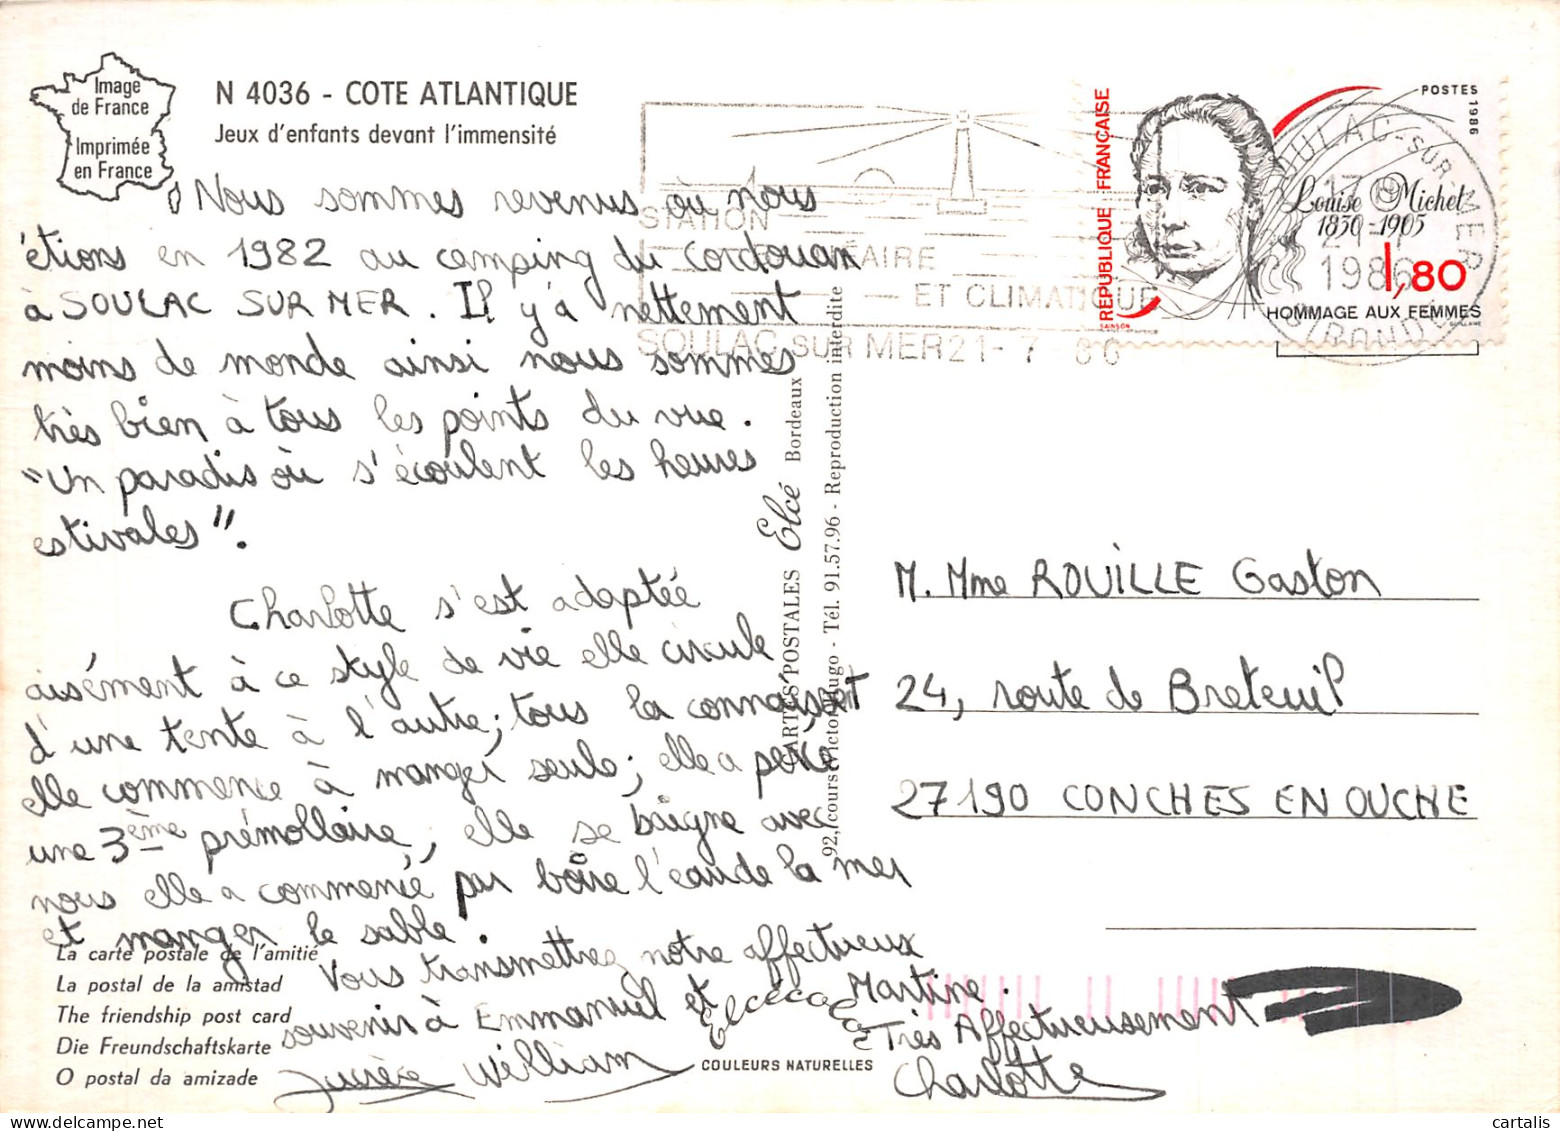 Image
de France
Imprimée
en France
N 4036 - COTE ATLANTIQUE
Jeux d'enfants devant l'immensité
Nous sommes revenus où nous
étions en 1982 au camping du Cordouan
à SOULAC SUR MER. Il y'a nettement
moins de monde ainsi nous sommes
très bien à tous les points du vue.
"Un paradis où s'écoulent les heures
estivales".
Charlotte s'est adaptée
aisément à ce style de vie elle circule
d'une tente à l'autre; tous la connaissent
elle commence à manger seule; elle a percé
une 3ème prémollaire, elle se baigne avec
nous elle a commencé par boire l'eau de la mer
et manger le sable.
Vous transmettrez notre affectueux
souvenir à Emmanuel et Martine.
Très Affectueusement
William
Charlotte
La carte postale de l'amitié
La postal de la amistad
The friendship post card
Die Freundschaftskarte
O postal da amizade
CARTES POSTALES Elcé Bordeaux
92, cours Victor Hugo - Tél. 91.57.96 - Reproduction interdite
Elcécolor
COULEURS NATURELLES
STATION
BALNÉAIRE
ET CLIMATIQUE
SOULAC SUR MER 21-7-86
SOULAC-SUR-MER
17 H
21-7
1986
GIRONDE
RÉPUBLIQUE FRANÇAISE
POSTES 1986
Louise Michel
1830-1905
1,80
HOMMAGE AUX FEMMES
M. Mme ROUILLE Gaston
24, route de Breteuil
27190 CONCHES EN OUCHE
cartalis